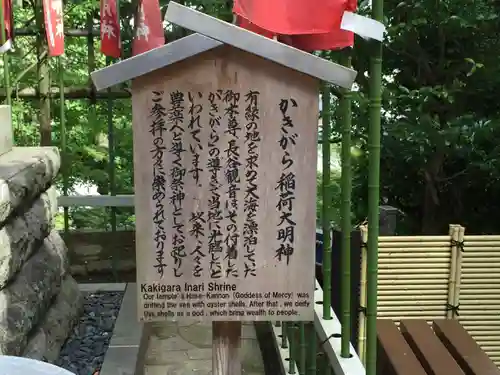 かきがら稲荷大明神
有縁の地を求め大海を漂泊していた
御本尊、長谷観音はその付着した
「かきがら」の導きでこの地に
いわれています。以来、人々を
豊楽へと導く御祭神としてお祀りし
ご参拝の方々に崇められております
Kakigara Inari Shrine
Our temple's Kannon (Goddess of Mercy) was
drifting the sea with oyster shells. After that, we deify
the oyster shells as a god, which bring wealth to people.